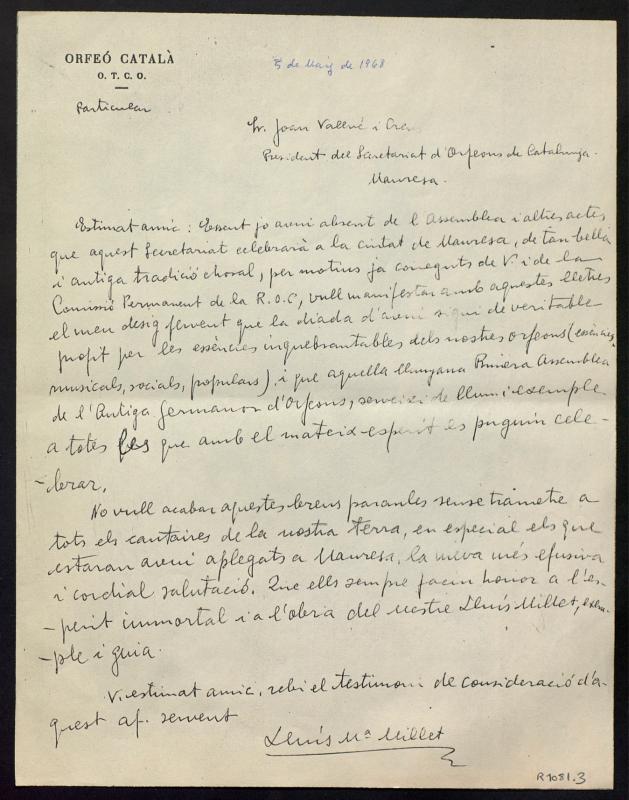 ORFEÓ CATALÀ
O. T. C. O.
Particular
5 de Maig de 1968
Sr. Joan Vallvé i Creu
President del Secretariat d'Orfeons de Catalunya.
Manresa.
Estimat amic: Essent jo avui absent de l'Assemblea i altres actes
que aquest Secretariat celebrarà a la ciutat de Manresa, de tan bella
i antiga tradició choral, per motius ja coneguts de V. i de la
Comissió Permanent de la R.O.C, vull manifestar amb aquestes lletres
el meu desig fervent que la diada d'avui sigui de veritable
profit per les essències inquebrantables dels nostres orfeons (essències
musicals, socials, populars), i que aquella llunyana Primera Assemblea
de l'Antiga Germanor d'Orfeons, serveixi de llum i exemple
a totes les que amb el mateix esperit es puguin cele-
-brar.
No vull acabar aquestes breus paraules sense trametre a
tots els cantaires de la nostra terra, en especial els que
estaran avui aplegats a Manresa, la meva més efusiva
i cordial salutació. Que ells sempre facin honor a l'es-
-perit immortal i a l'obra del mestre Lluís Millet, exem-
-ple i guia.
V. estimat amic, rebi el testimoni de consideració d'a-
quest af. servent
Lluís Mª Millet
R1081.3